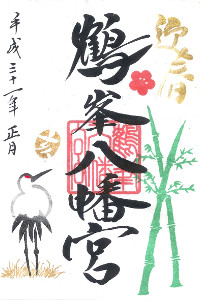 迎春
鶴峯八幡宮
平成三十一年 正月